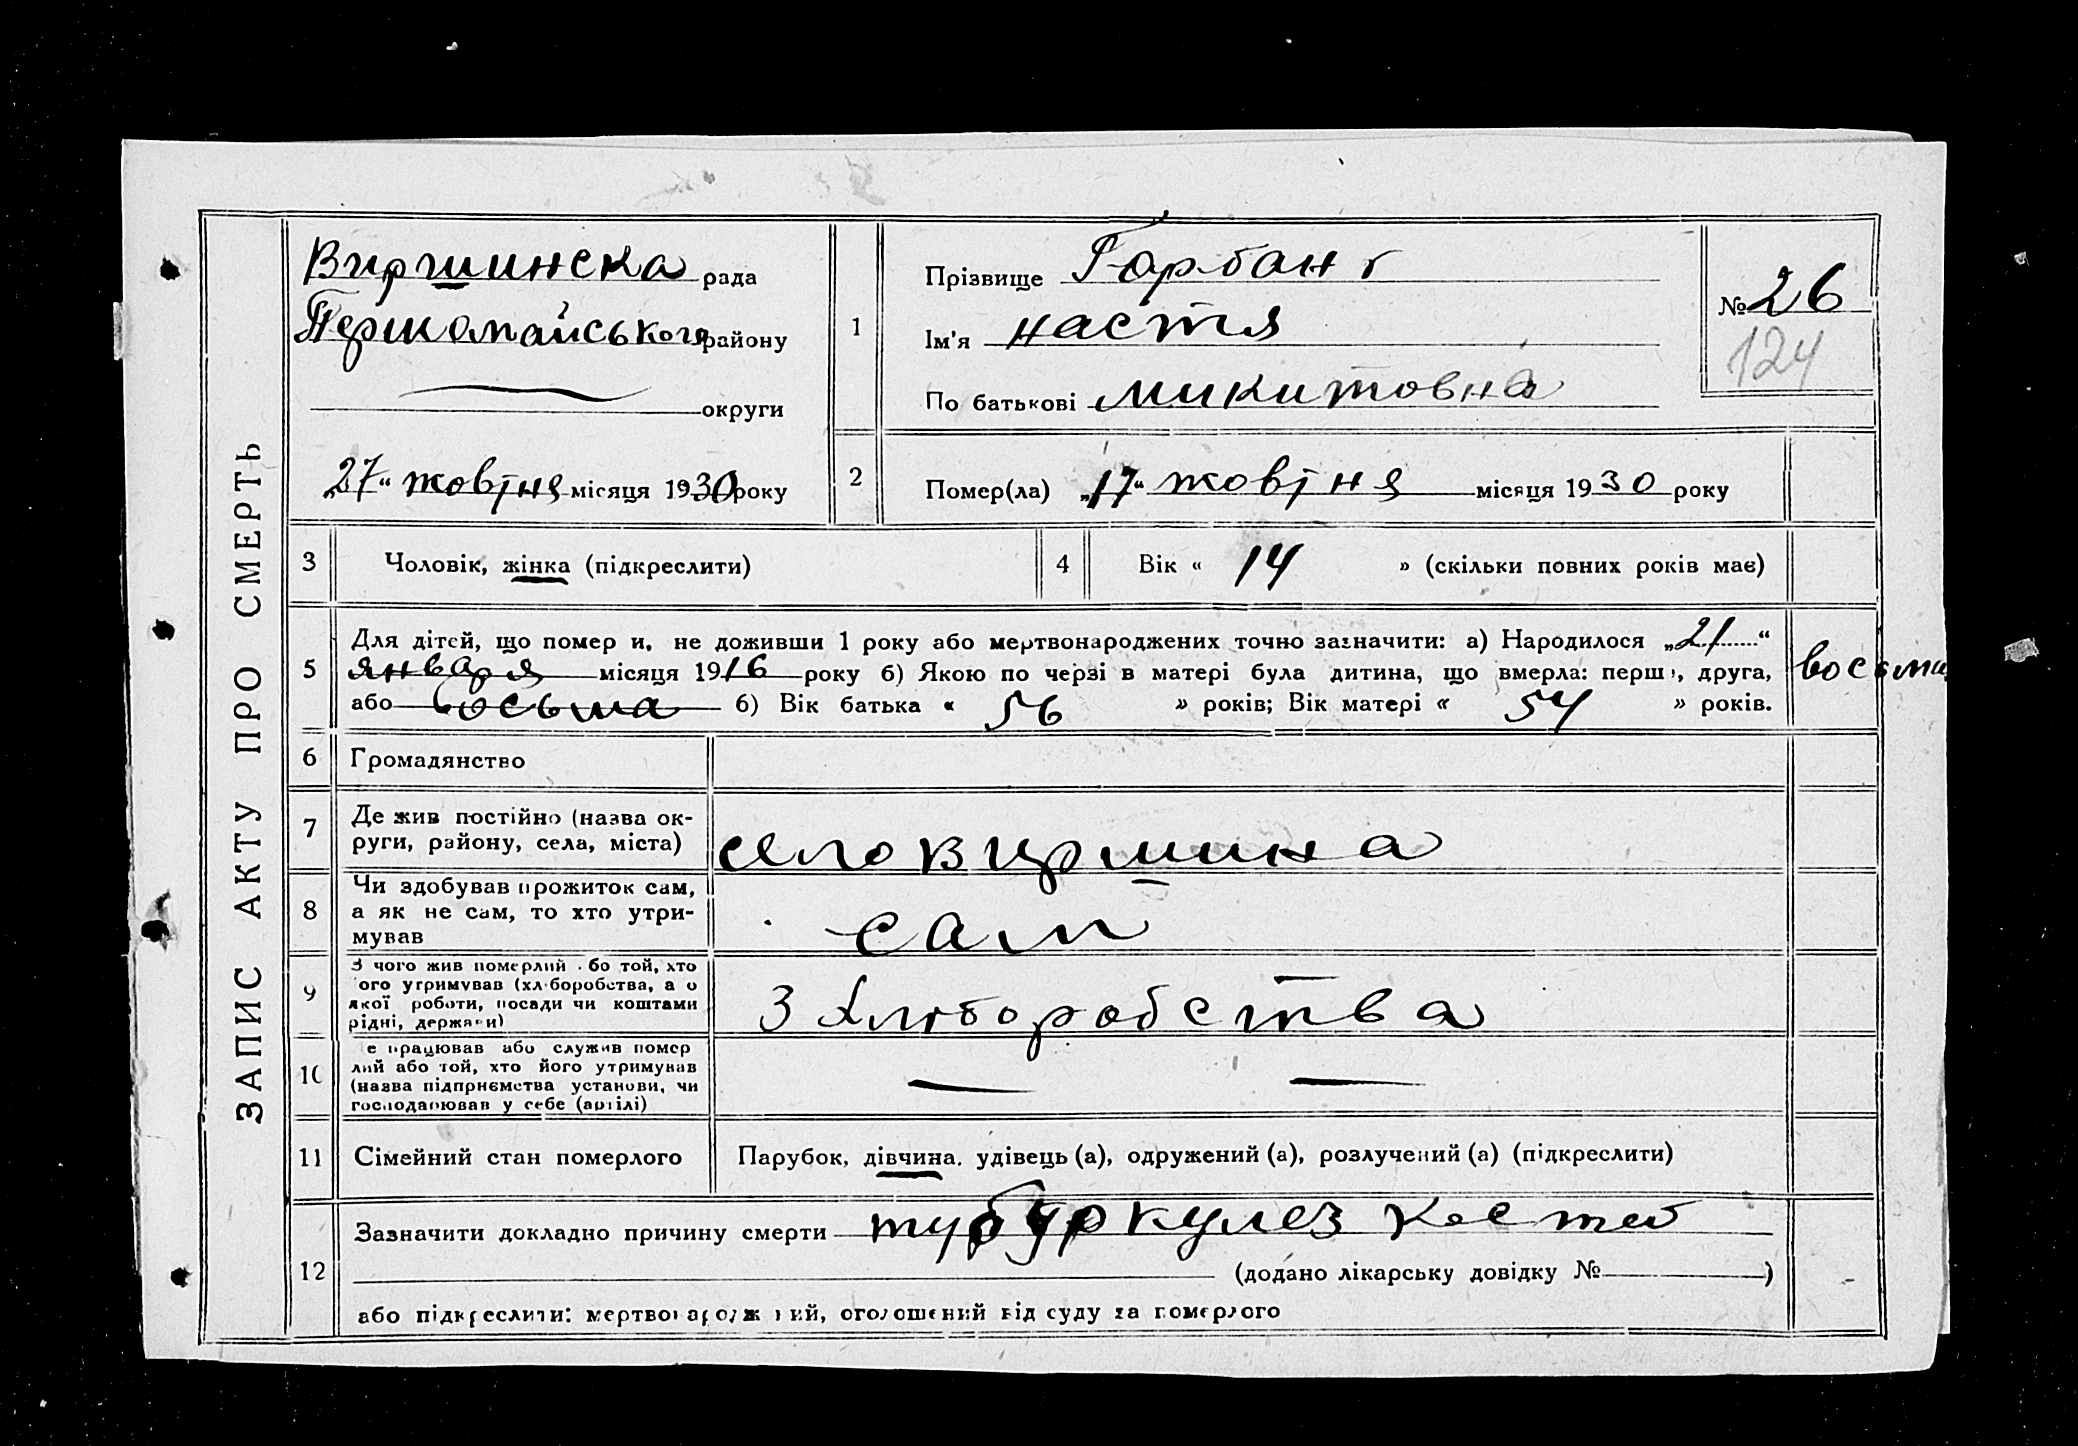 ЗАПИС АКТУ ПРО СМЕРТЬ
Виршинска рада
Першомайського району
округи
"27" жовтня місяця 1930 року
1
Прізвище Горбан
Ім'я настя
По батькові микитовна
№ 26
124
2
Помер(ла) „17" жовтня місяця 1930 року
3
Чоловік, жінка (підкреслити)
4
Вік « 14 » (скільки повних років має)
5
Для дітей, що помер и, не доживши 1 року або мертвонароджених точно зазначити: а) Народилося „21"
января місяця 1916 року б) Якою по черзі в матері була дитина, що вмерла: перш , друга,
або восьма б) Вік батька « 56 » років; Вік матері « 54 » років.
6
Громадянство
7
Де жив постійно (назва ок-
руги, району, села, міста)
село виршина
8
Чи здобував прожиток сам,
а як не сам, то хто утри-
мував
сам
9
З чого жив померлий бо той, хто
ого утримував (хл боробства, а о
якої роботи, посади чи коштами
рідні, держави)
З хлиборобства
10
е працював або служив помер
лий або той, хто його утримував
(назва підприємства установи, чи
господарював у себе (артілі)
11
Сімейний стан померлого
Парубок, дівчина, удівець (а), одружений (а), розлучений (а) (підкреслити)
12
Зазначити докладно причину смерти тубуркулез костей
(додано лікарську довідку № )
або підкреслити: мертвонароджений, оголошений від суду за померлого